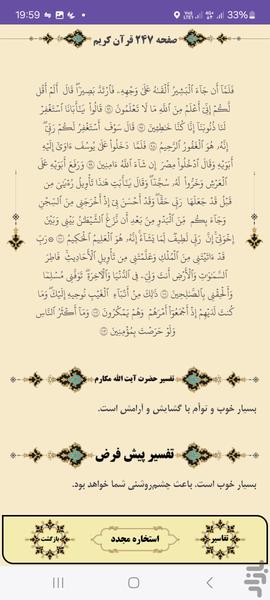 19:59 33%
صفحه ۲۴۷ قرآن کریم
فَلَمَّا أَن جَاءَ الْبَشِيرُ أَلْقَاهُ عَلَىٰ وَجْهِهِ فَارْتَدَّ بَصِيرًا قَالَ أَلَمْ أَقُل
لَّكُمْ إِنِّي أَعْلَمُ مِنَ اللَّهِ مَا لَا تَعْلَمُونَ ۝ قَالُوا يَا أَبَانَا اسْتَغْفِرْ
لَنَا ذُنُوبَنَا إِنَّا كُنَّا خَاطِئِينَ ۝ قَالَ سَوْفَ أَسْتَغْفِرُ لَكُمْ رَبِّي
إِنَّهُ هُوَ الْغَفُورُ الرَّحِيمُ ۝ فَلَمَّا دَخَلُوا عَلَىٰ يُوسُفَ آوَىٰ إِلَيْهِ
أَبَوَيْهِ وَقَالَ ادْخُلُوا مِصْرَ إِن شَاءَ اللَّهُ آمِنِينَ ۝ وَرَفَعَ أَبَوَيْهِ عَلَى
الْعَرْشِ وَخَرُّوا لَهُ سُجَّدًا وَقَالَ يَا أَبَتِ هَٰذَا تَأْوِيلُ رُؤْيَايَ مِن
قَبْلُ قَدْ جَعَلَهَا رَبِّي حَقًّا وَقَدْ أَحْسَنَ بِي إِذْ أَخْرَجَنِي مِنَ السِّجْنِ
وَجَاءَ بِكُم مِّنَ الْبَدْوِ مِن بَعْدِ أَن نَّزَغَ الشَّيْطَانُ بَيْنِي وَبَيْنَ
إِخْوَتِي إِنَّ رَبِّي لَطِيفٌ لِّمَا يَشَاءُ إِنَّهُ هُوَ الْعَلِيمُ الْحَكِيمُ ۝ رَبِّ
قَدْ آتَيْتَنِي مِنَ الْمُلْكِ وَعَلَّمْتَنِي مِن تَأْوِيلِ الْأَحَادِيثِ فَاطِرَ
السَّمَاوَاتِ وَالْأَرْضِ أَنتَ وَلِيِّي فِي الدُّنْيَا وَالْآخِرَةِ تَوَفَّنِي مُسْلِمًا
وَأَلْحِقْنِي بِالصَّالِحِينَ ۝ ذَٰلِكَ مِنْ أَنبَاءِ الْغَيْبِ نُوحِيهِ إِلَيْكَ وَمَا
كُنتَ لَدَيْهِمْ إِذْ أَجْمَعُوا أَمْرَهُمْ وَهُمْ يَمْكُرُونَ ۝ وَمَا أَكْثَرُ النَّاسِ
وَلَوْ حَرَصْتَ بِمُؤْمِنِينَ ۝
تفسیر حضرت آیت الله مکارم
بسیار خوب و توأم با گشایش و آرامش است.
تفسیر پیش فرض
بسیار خوب است. باعث چشم‌روشنی شما خواهد بود.
تفاسیر
استخاره مجدد
بازگشت
بازار